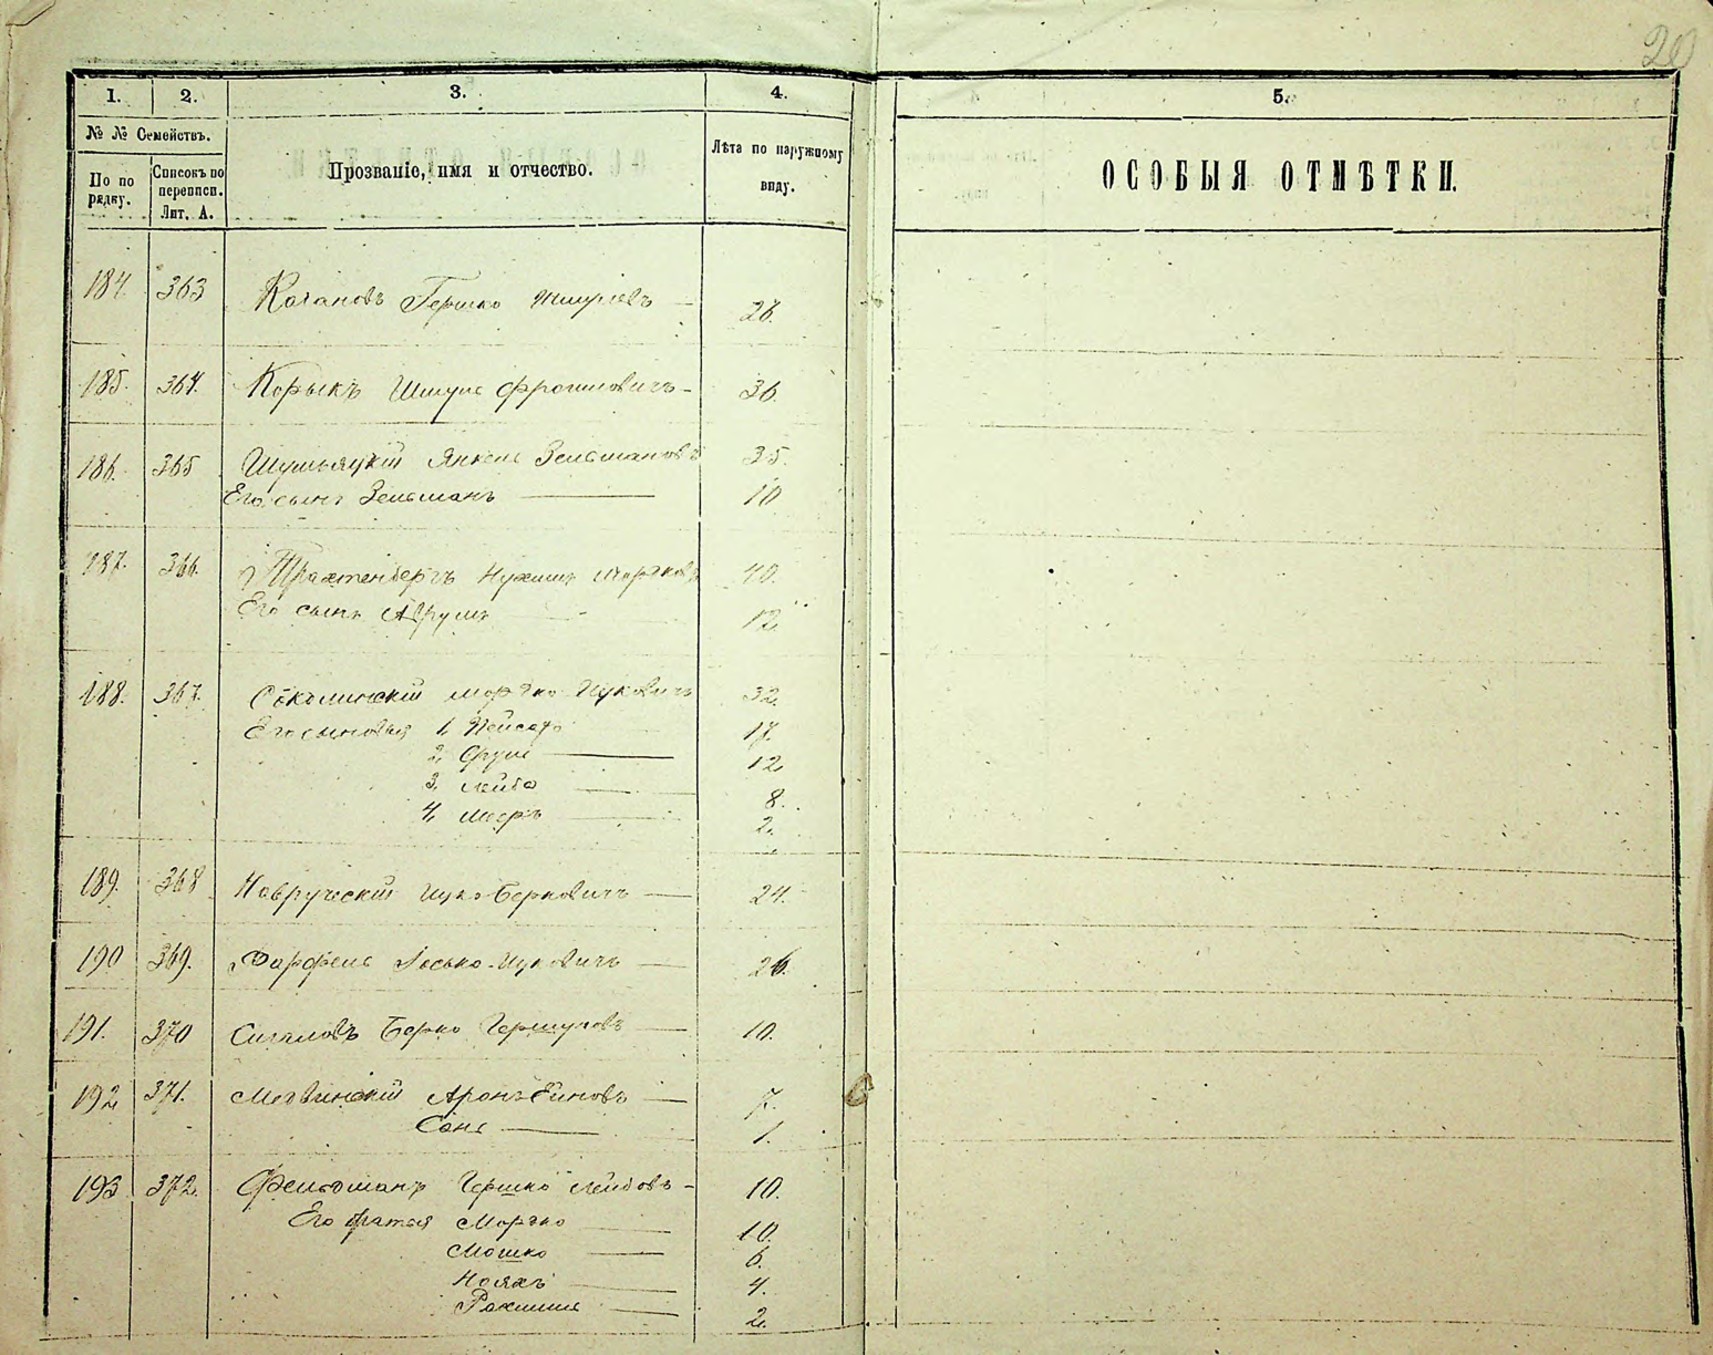 20
1. 2. 3. 4. 5.
№ № Семействъ.
По по рядку.
Списокъ по переписи. Лит. А.
Прозваніе, имя и отчество.
Лѣта по наружному виду.
ОСОБЫЯ ОТМѢТКИ.
184. 363 Кагановъ Гершко Шмулевъ 26.
185. 364. Корыкъ Шмуль Фроимовичъ 36.
186. 365 Шумяцкій Янкель Зельмановъ 35.
Его сынъ Зельманъ 10
187. 366. Трахтенбергъ Нухимъ Мордковъ 40.
Его сынъ Аврумъ 12.
188. 367. Соколинскій Мордко Ицковичъ 32.
Его сыновья 1, Пейсахъ 17.
2, Сруль 12
3, Лейба 8.
4, Мееръ 2.
189. 368 Навручскій Ицко Берковичъ 24.
190 369. Фарфель Іосько Ицковичъ 26.
191. 370 Сигаловъ Берко Гершуновъ 10.
192 371. Медвинскій Аронъ 7.
1.
193 372. Фельдманъ Гершко Лейбовъ 10.
Его братья Мордко 10.
Мошко 6.
Нояхъ 4.
Рахмиль 2.